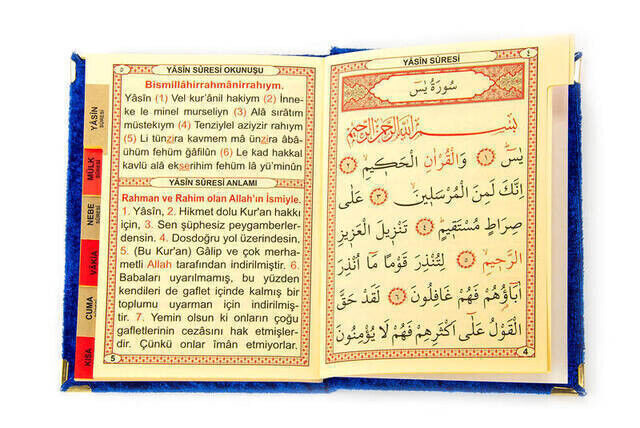 YÂSİN SÛRESİ OKUNUŞU
Bismillâhirrahmânirrahıym.
Yâsîn (1) Vel kur'ânil hakiym (2) İnne-
ke le minel murseliyn (3) Alâ sırâtım
müstekıym (4) Tenziylel aziyzir rahıym
(5) Li tünzira kavmem mâ ünzira âbâ-
ühüm fehüm ğâfilûn (6) Le kad hakkal
kavlü alâ ekserihim fehüm lâ yü'minûn
YÂSÎN SÛRESİ ANLAMI
Rahman ve Rahim olan Allah'ın ismiyle.
1. Yâsîn, 2. Hikmet dolu Kur'an hakkı
için, 3. Sen şüphesiz peygamberler-
densin. 4. Dosdoğru yol üzerindesin.
5. (Bu Kur'an) Gâlip ve çok merha-
metli Allah tarafından indirilmiştir. 6.
Babaları uyarılmamış, bu yüzden
kendileri de gaflet içinde kalmış bir
toplumu uyarman için indirilmiş-
tir. 7. Yemin olsun ki onların çoğu
gafletlerinin cezasını hak etmişler-
dir. Çünkü onlar îmân etmiyorlar.
5
YÂSİN
SÛRESİ
MÜLK
NEBE
SÛRESİ
VÂKIA
CUMA
KISA
YÂSÎN SÛRESİ
٤
سُورَةُ يٰسٓ
بِسْمِ اللّٰهِ الرَّحْمٰنِ الرَّحِيمِ
يٰسٓ ﴿١﴾ وَالْقُرْاٰنِ الْحَكِيمِ ﴿٢﴾
اِنَّكَ لَمِنَ الْمُرْسَلِينَ ﴿٣﴾ عَلٰى
صِرَاطٍ مُسْتَقِيمٍ ﴿٤﴾ تَنْزِيلَ الْعَزِيزِ
الرَّحِيمِ ﴿٥﴾ لِتُنْذِرَ قَوْمًا مَٓا اُنْذِرَ
اٰبَٓاؤُهُمْ فَهُمْ غَافِلُونَ ﴿٦﴾ لَقَدْ حَقَّ
الْقَوْلُ عَلٰٓى اَكْثَرِهِمْ فَهُمْ لَا يُؤْمِنُونَ
4